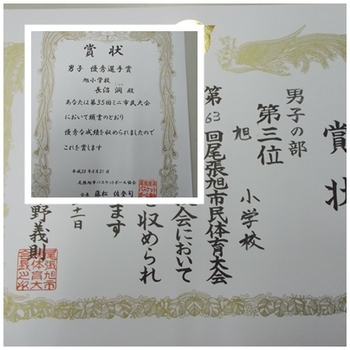 賞状
男子 優秀選手賞
旭小学校
長沼 潤 殿
あなたは第35回ミニ市民大会
において頭書のとおり
優秀な成績を収められましたので
これを賞します
平成28年8月21日
尾張旭市バスケットボール協会
会長 藤松 佐登司
賞状
男子の部
第三位
旭 小学校
第63回尾張旭市民体育大会
会において
収められ
ます
十一日
野義則